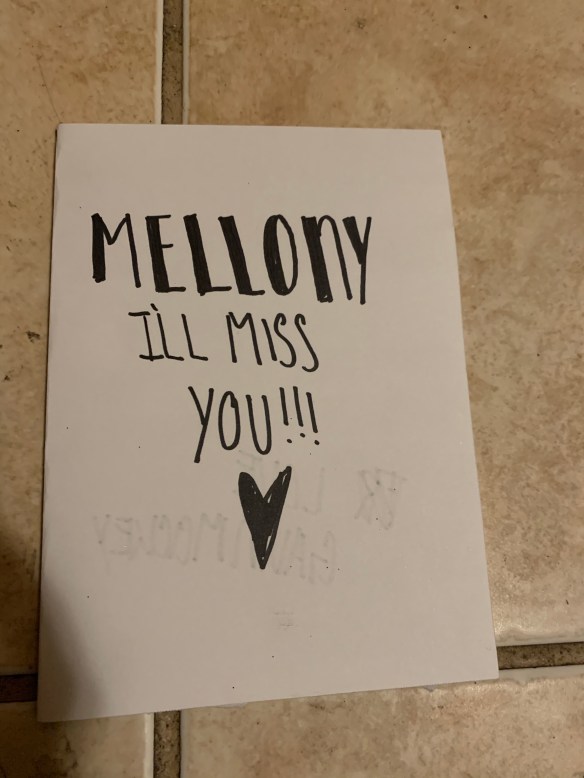 MELLONY
I'LL MISS
YOU!!!